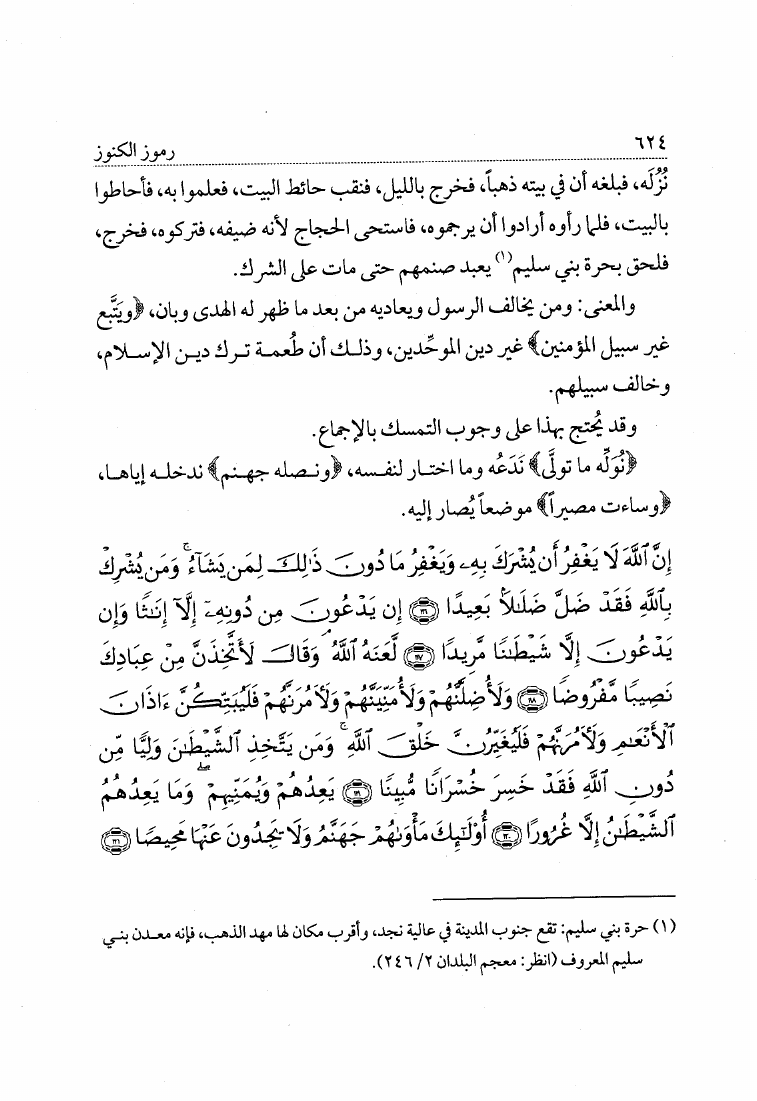 ٦٢٤
رموز الكنوز
نُزُلَه، فبلغه أن في بيته ذهباً، فخرج بالليل، فنقب حائط البيت، فعلموا به، فأحاطوا
بالبيت، فلما رأوه أرادوا أن يرجموه، فاستحى الحجاج لأنه ضيفه، فتركوه، فخرج،
فلحق بحرة بني سليم(١) يعبد صنمهم حتى مات على الشرك.
والمعنى: ومن يخالف الرسول ويعاديه من بعد ما ظهر له الهدى وبان، ﴿ويَتَّبع
غير سبيل المؤمنين﴾ غير دين الموحِّدين، وذلك أن طُعمة ترك دين الإسلام،
وخالف سبيلهم.
وقد يُحتج بهذا على وجوب التمسك بالإجماع.
﴿نُوَلِّه ما تولَّى﴾ نَدَعُه وما اختار لنفسه، ﴿ونصله جهنم﴾ ندخله إياها،
﴿وساءت مصيراً﴾ موضعاً يُصار إليه.
إِنَّ ٱللَّهَ لَا يَغْفِرُ أَن يُشْرَكَ بِهِۦ وَيَغْفِرُ مَا دُونَ ذَٰلِكَ لِمَن يَشَآءُ ۚ وَمَن يُشْرِكْ
بِٱللَّهِ فَقَدْ ضَلَّ ضَلَٰلًا بَعِيدًا ﴿١١٦﴾ إِن يَدْعُونَ مِن دُونِهِۦٓ إِلَّآ إِنَٰثًا وَإِن
يَدْعُونَ إِلَّا شَيْطَٰنًا مَّرِيدًا ﴿١١٧﴾ لَّعَنَهُ ٱللَّهُ ۘ وَقَالَ لَأَتَّخِذَنَّ مِنْ عِبَادِكَ
نَصِيبًا مَّفْرُوضًا ﴿١١٨﴾ وَلَأُضِلَّنَّهُمْ وَلَأُمَنِّيَنَّهُمْ وَلَـَٔامُرَنَّهُمْ فَلَيُبَتِّكُنَّ ءَاذَانَ
ٱلْأَنْعَٰمِ وَلَـَٔامُرَنَّهُمْ فَلَيُغَيِّرُنَّ خَلْقَ ٱللَّهِ ۚ وَمَن يَتَّخِذِ ٱلشَّيْطَٰنَ وَلِيًّا مِّن
دُونِ ٱللَّهِ فَقَدْ خَسِرَ خُسْرَانًا مُّبِينًا ﴿١١٩﴾ يَعِدُهُمْ وَيُمَنِّيهِمْ ۖ وَمَا يَعِدُهُمُ
ٱلشَّيْطَٰنُ إِلَّا غُرُورًا ﴿١٢٠﴾ أُو۟لَٰٓئِكَ مَأْوَىٰهُمْ جَهَنَّمُ وَلَا يَجِدُونَ عَنْهَا مَحِيصًا ﴿١٢١﴾
(١) حرة بني سليم: تقع جنوب المدينة في عالية نجد، وأقرب مكان لها مهد الذهب، فإنه معدن بني
سليم المعروف (انظر: معجم البلدان ٢/ ٢٤٦).